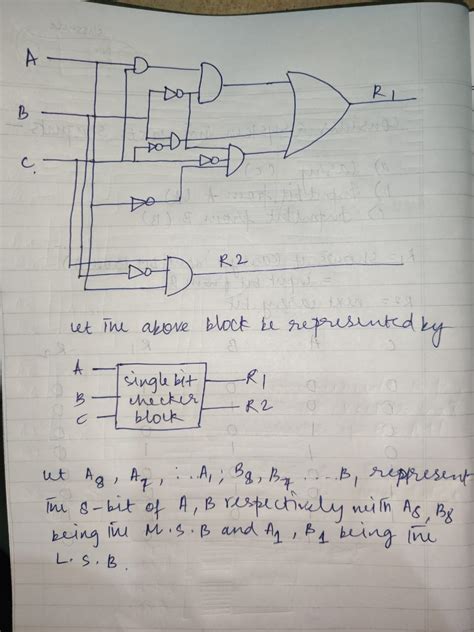 A
B
C.
R1
R2
let the above block be represented by
A
B
C
single bit
checker
block
R1
R2
let A8, A7, ... A1; B8, B7 .... B1 represent
the 8-bit of A, B respectively with A8, B8
being the M.S.B and A1, B1 being the
L.S.B.